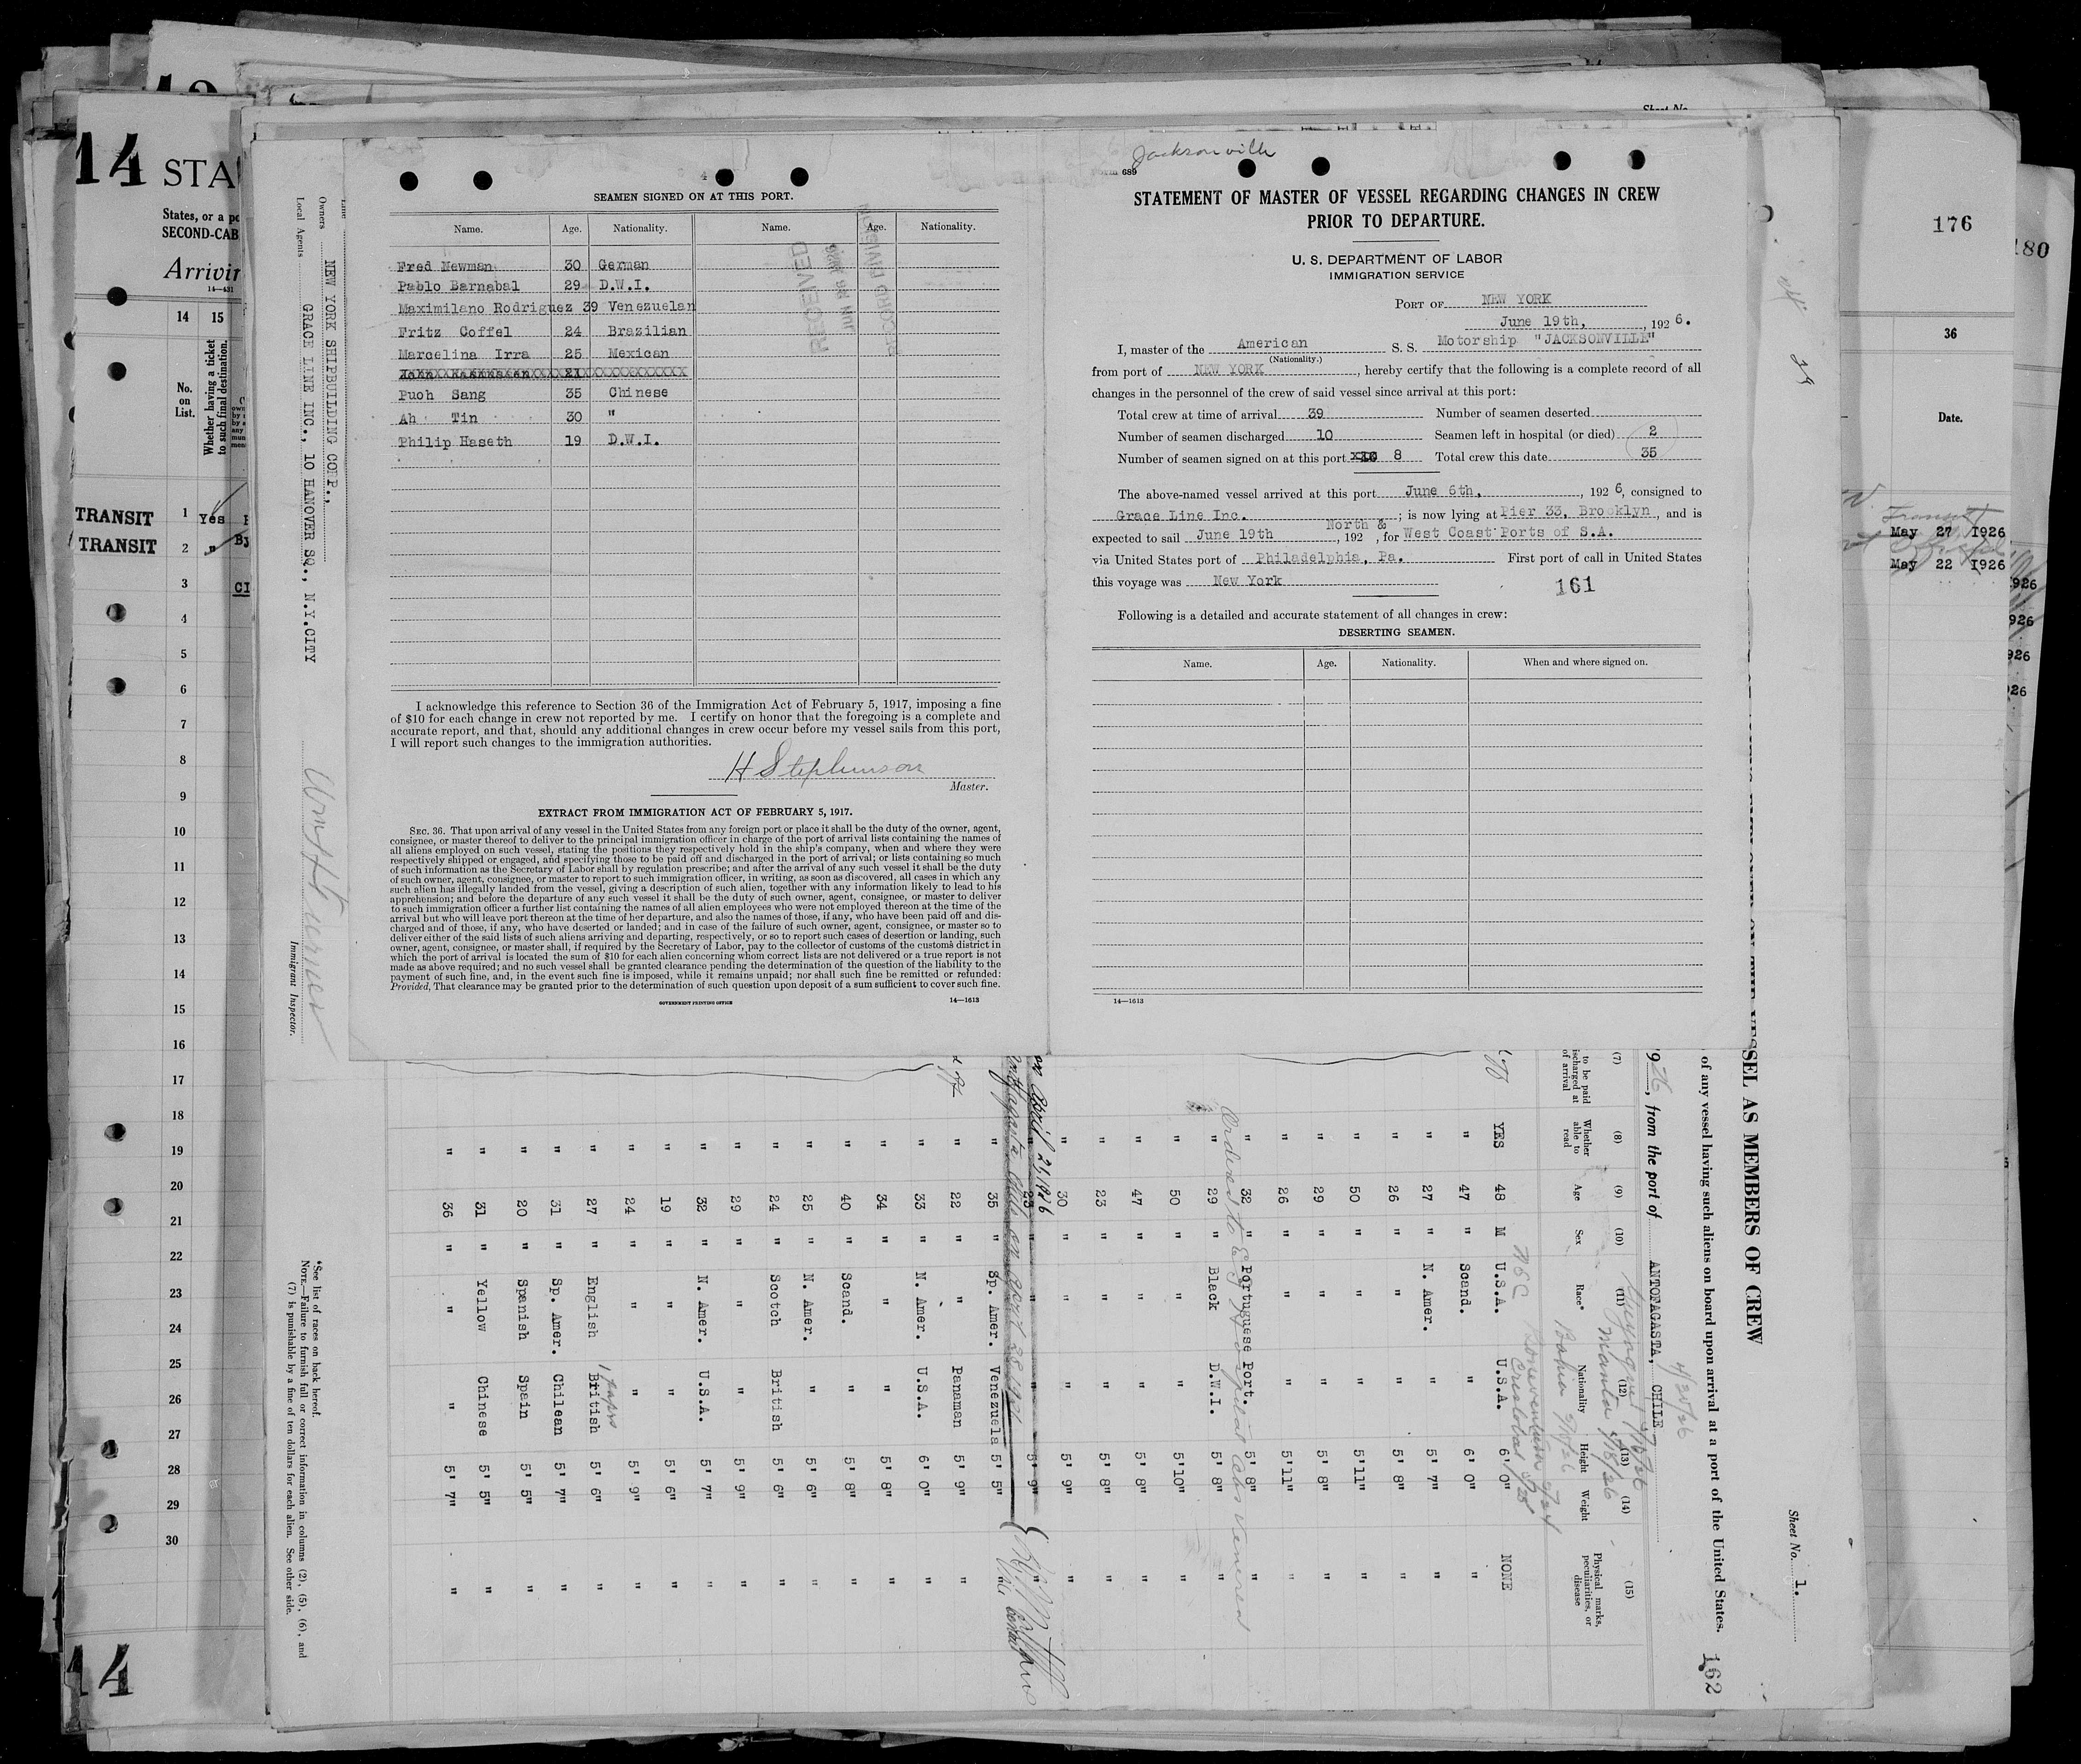 14 STA
States, or a po
SECOND-CAB
Arrivin
14—431
14 15
No. on List.
Whether having a ticket to such final destination.
TRANSIT 1 Yes
TRANSIT 2 "
3
4
5
6
7
8
9
10
11
12
13
14
15
16
17
18
19
20
21
22
23
24
25
26
27
28
29
30
14
Owners NEW YORK SHIPBUILDING CORP.,
Local Agents GRACE LINE INC., 10 HANOVER SQ., N.Y.CITY
Immigrant Inspector.
4
SEAMEN SIGNED ON AT THIS PORT.
Name. Age. Nationality. Name. Age. Nationality.
Fred Newman 30 German
Pablo Barnabal 29 D.W.I.
Maximilano Rodriguez 39 Venezuelan
Fritz Coffel 24 Brazilian
Marcelina Irra 25 Mexican
Puoh Sang 35 Chinese
Ah Tin 30 "
Philip Haseth 19 D.W.I.
RECEIVED
RECORD DIVISION
I acknowledge this reference to Section 36 of the Immigration Act of February 5, 1917, imposing a fine
of $10 for each change in crew not reported by me. I certify on honor that the foregoing is a complete and
accurate report, and that, should any additional changes in crew occur before my vessel sails from this port,
I will report such changes to the immigration authorities.
H Stephenson
Master.
EXTRACT FROM IMMIGRATION ACT OF FEBRUARY 5, 1917.
SEC. 36. That upon arrival of any vessel in the United States from any foreign port or place it shall be the duty of the owner, agent,
consignee, or master thereof to deliver to the principal immigration officer in charge of the port of arrival lists containing the names of
all aliens employed on such vessel, stating the positions they respectively hold in the ship's company, when and where they were
respectively shipped or engaged, and specifying those to be paid off and discharged in the port of arrival; or lists containing so much
of such information as the Secretary of Labor shall by regulation prescribe; and after the arrival of any such vessel it shall be the duty
of such owner, agent, consignee, or master to report to such immigration officer, in writing, as soon as discovered, all cases in which any
such alien has illegally landed from the vessel, giving a description of such alien, together with any information likely to lead to his
apprehension; and before the departure of any such vessel it shall be the duty of such owner, agent, consignee, or master to deliver
to such immigration officer a further list containing the names of all alien employees who were not employed thereon at the time of the
arrival but who will leave port thereon at the time of her departure, and also the names of those, if any, who have been paid off and dis-
charged and of those, if any, who have deserted or landed; and in case of the failure of such owner, agent, consignee, or master so to
deliver either of the said lists of such aliens arriving and departing, respectively, or so to report such cases of desertion or landing, such
owner, agent, consignee, or master shall, if required by the Secretary of Labor, pay to the collector of customs of the customs district in
which the port of arrival is located the sum of $10 for each alien concerning whom correct lists are not delivered or a true report is not
made as above required; and no such vessel shall be granted clearance pending the determination of the question of the liability to the
payment of such fine, and, in the event such fine is imposed, while it remains unpaid; nor shall such fine be remitted or refunded:
Provided, That clearance may be granted prior to the determination of such question upon deposit of a sum sufficient to cover such fine.
GOVERNMENT PRINTING OFFICE 14—1613
Jacksonville
Form 689
STATEMENT OF MASTER OF VESSEL REGARDING CHANGES IN CREW
PRIOR TO DEPARTURE.
U. S. DEPARTMENT OF LABOR
IMMIGRATION SERVICE
PORT OF NEW YORK
June 19th, , 192 6.
I, master of the American S. S. Motorship "JACKSONVILLE"
(Nationality.)
from port of NEW YORK, hereby certify that the following is a complete record of all
changes in the personnel of the crew of said vessel since arrival at this port:
Total crew at time of arrival 39 Number of seamen deserted
Number of seamen discharged 10 Seamen left in hospital (or died) 2
Number of seamen signed on at this port 8 Total crew this date 35
The above-named vessel arrived at this port June 6th, , 192 6, consigned to
Grace Line Inc. ; is now lying at Pier 33, Brooklyn, and is
North &
expected to sail June 19th, 192 , for West Coast Ports of S.A.
via United States port of Philadelphia, Pa. First port of call in United States
this voyage was New York
161
Following is a detailed and accurate statement of all changes in crew:
DESERTING SEAMEN.
Name. Age. Nationality. When and where signed on.
14—1613
SSEL AS MEMBERS OF CREW
of any vessel having such aliens on board upon arrival at a port of the United States.
Sheet No. 1.
162
926, from the port of ANTOFAGASTA, CHILE
4/20/26
(7) (8) (9) (10) (11) (12) (13) (14) (15)
to be paid discharged at of arrival
Whether able to read
Age
Sex
Race*
Nationality
Height
Weight
Physical marks, peculiarities, or disease
YES 48 M U.S.A. U.S.A. 6' 0" NONE
" 47 " Scand. " 6' 0" "
" 27 " N. Amer. " 5' 7" "
" 26 " " " 5' 8" "
" 50 " " " 5'11" "
" 29 " " " 5' 8" "
" 26 " " " 5'11" "
" 32 " Portuguese Port. 5' 8" "
" 29 " Black D.W.I. 5' 8" "
" 50 " " " 5'10" "
" 47 " " " 5' 8" "
" 23 " " " 5' 8" "
" 30 " " " 5' 9" "
" 23 " " " 5' 9" "
" 35 " Sp. Amer. Venezuela 5' 5" "
" 22 " " Panaman 5' 9" "
" 33 " N. Amer. U.S.A. 6' 0" "
" 34 " " " 5' 8" "
" 40 " Scand. " 5' 8" "
" 25 " N. Amer. " 5' 6" "
" 24 " Scotch British 5' 6" "
" 29 " " " 5' 9" "
" 32 " N. Amer. U.S.A. 5' 7" "
" 19 " " " 5' 6" "
" 24 " " " 5' 9" "
" 27 " English British 5' 6" "
" 31 " Sp. Amer. Chilean 5' 7" "
" 20 " Spanish Spain 5' 5" "
" 31 " Yellow Chinese 5' 5" "
" 36 " " " 5' 7" "
*See list of races on back hereof.
NOTE.—Failure to furnish full or correct information in columns (2), (5), (6), and
(7) is punishable by a fine of ten dollars for each alien. See other side.
Sheet No.
176
180
36
Date.
Transit
May 27 1926
May 22 1926